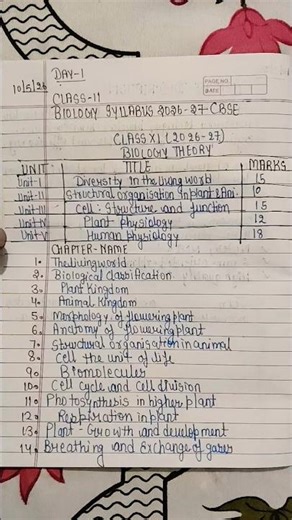 DAY-1
PAGE NO.
DATE
10/5/26
CLASS-11
BIOLOGY SYLLABUS 2026-27 CBSE
CLASS XI (2026-27)
BIOLOGY THEORY
UNIT TITLE MARKS
Unit-I Diversity in the living world 15
Unit-II Structural organisation in plant & Ani. 10
Unit-III Cell: Structure and function 15
Unit-IV Plant Physiology 12
Unit-V Human physiology 18
CHAPTER-NAME
1. The living world
2. Biological classification
3. Plant Kingdom
4. Animal Kingdom
5. Morphology of flowering plant
6. Anatomy of flowering plant
7. Structural organisation in animal
8. Cell the unit of life
9. Biomolecules
10. Cell cycle and Cell division
11. Photosynthesis in higher plant
12. Respiration in plant
13. Plant - Growth and development
14. Breathing and Exchange of gases